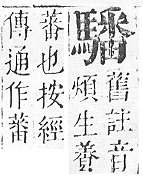 舊註音
煩生養
蕃也按經
傳通作蕃